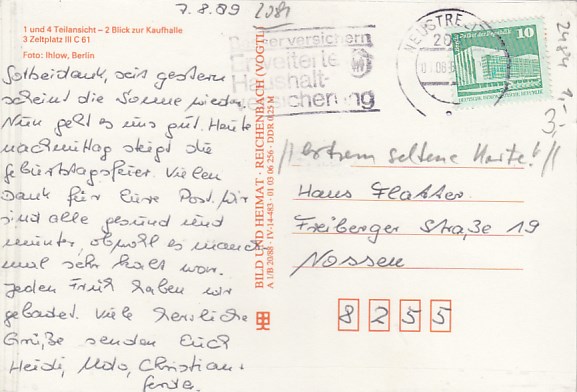 7.8.89
2081
1 und 4 Teilansicht – 2 Blick zur Kaufhalle
3 Zeltplatz III C 61
Foto: Ihlow, Berlin
Gottseidank, seit gestern
scheint die Sonne wieder.
Nun geht es uns gut. Heute
nachmittag steigt die
Geburtstagsfeier. Vielen
Dank für Eure Post. Wir
sind alle gesund und
munter, obwohl es manch-
mal sehr kalt war.
Jeden Früh haben wir
gebadet. Viele herzliche
Grüße senden Euch
Heidi, Udo, Christian +
BILD UND HEIMAT · REICHENBACH (VOGTL
A 1/B 20/88 · IV-14-483 · 01 03 06 256 · DDR 0,25 M
versichern
Erweiterte
Haushalt-
NEUSTRE
20
10
2484
1,-
3,-
// extrem seltene Karte! //
Hans Flatter
Freiberger Straße 19
Nossen
8 2 5 5